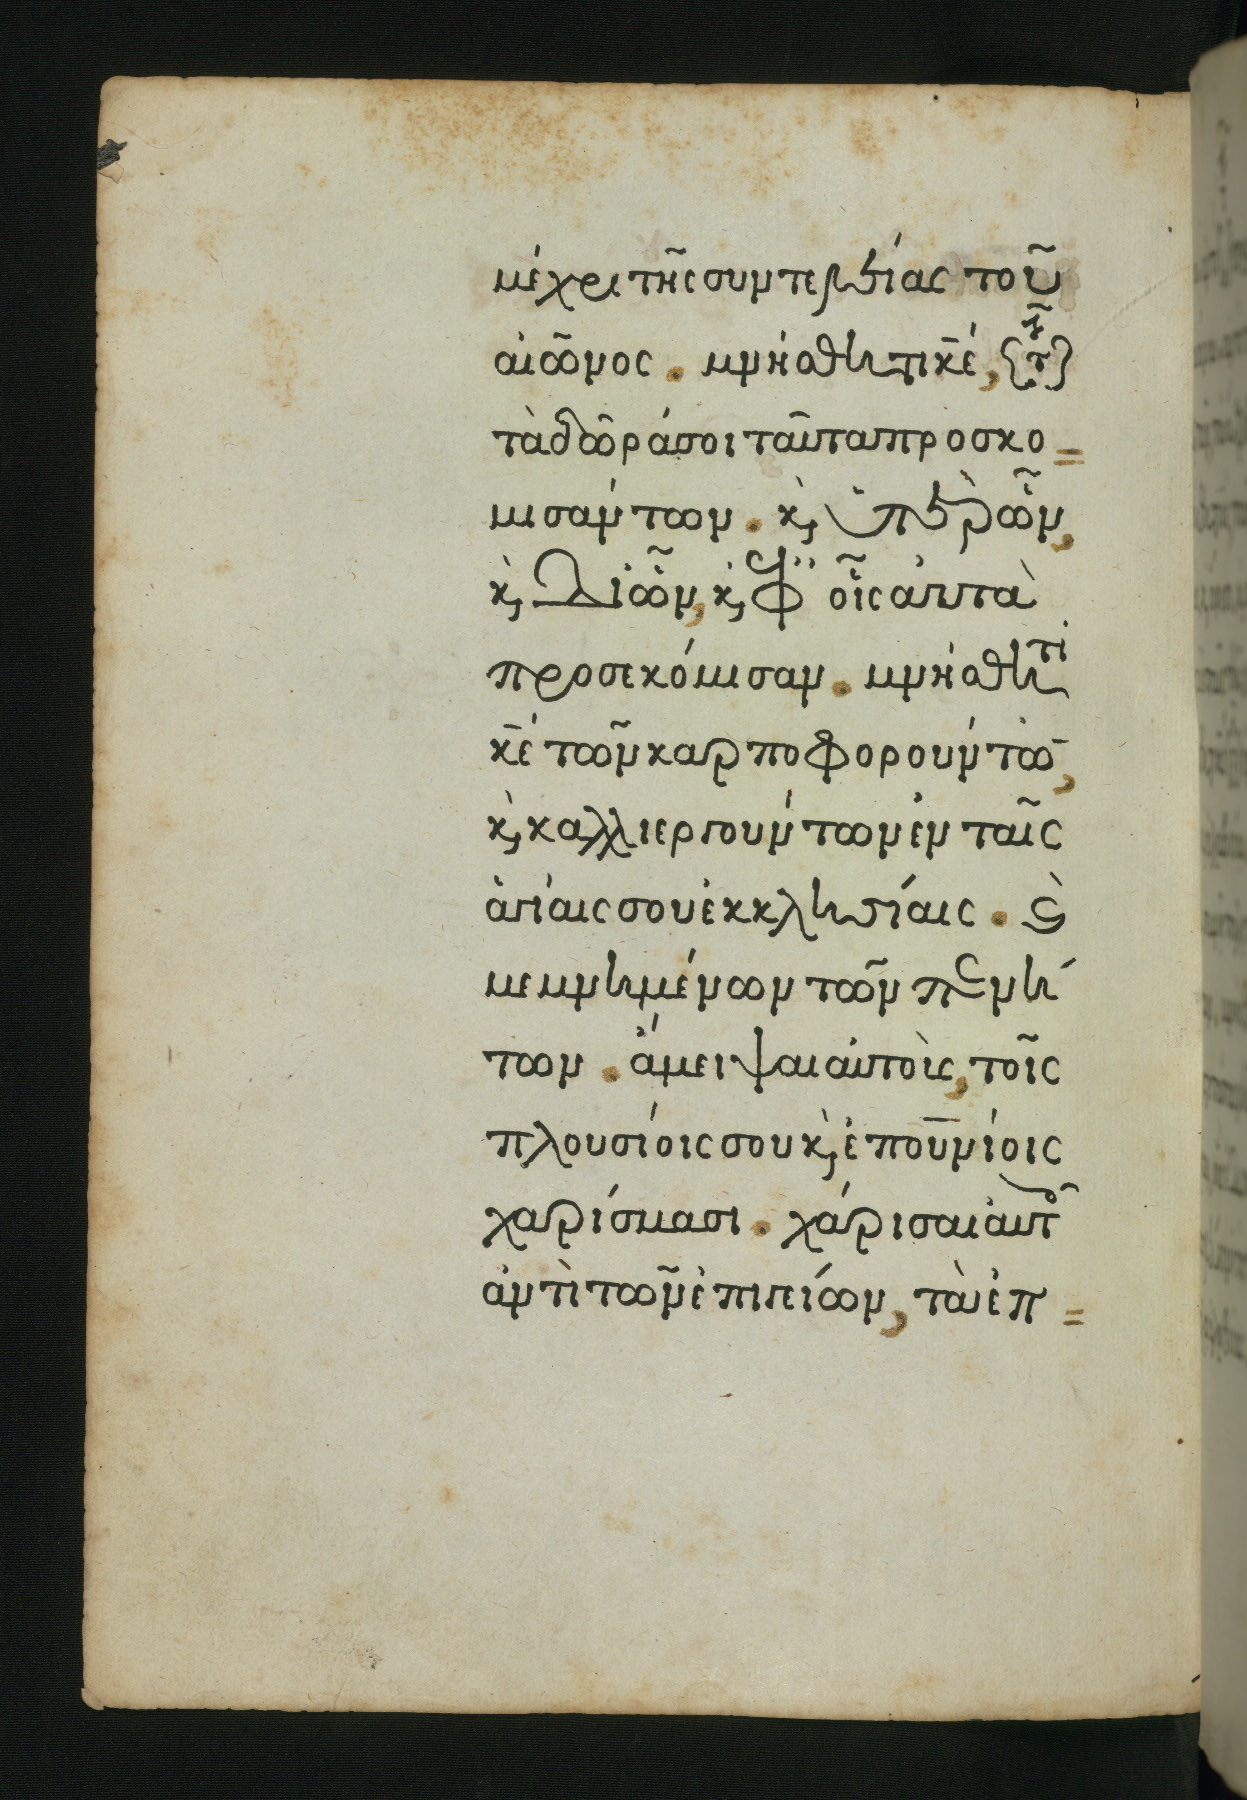 μέχρι τῆς συντελείας τοῦ
αἰῶνος. μνήσθητι κ̅ε̅, τῶν
τὰ δῶρά σοι ταῦτα προσκο=
μισάντων. κ̀, ὑπὲρ ὧν,
κ̀, δι ὧν, κ̀, ἐφ οἷς αὐτὰ
προσεκόμισαν. μνήσθητι
κ̅ε̅ τῶν καρποφορούντω̅,
κ̀, καλλιεργούντων ἐν ταῖς
ἁγίαις σου ἐκκλησίαις. ϛ̀
μεμνημένων τῶν πενή
των. ἄμειψαι αὐτοὺς, τοῖς
πλουσίοις σου κ̀, ἐπουνίοις
χαρίσμασι. χάρισαι αὐτοῖς
ἀντὶ τῶν ἐπιγείων, τὰ ἐπ=